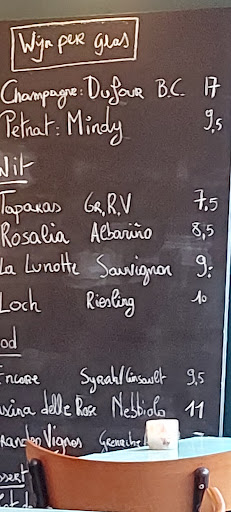 Wijn per glas
Champagne: Dufour B.C. 17
Petnat: Mindy 9,5
Wit
Taparas GR,R,V 7,5
Rosalia Albariño 8,5
La Lunotte Sauvignon 9,-
Loch Riesling 10
Encore Syrah/Cinsault 9,5
delle Rose Nebbiolo 11
Grenache